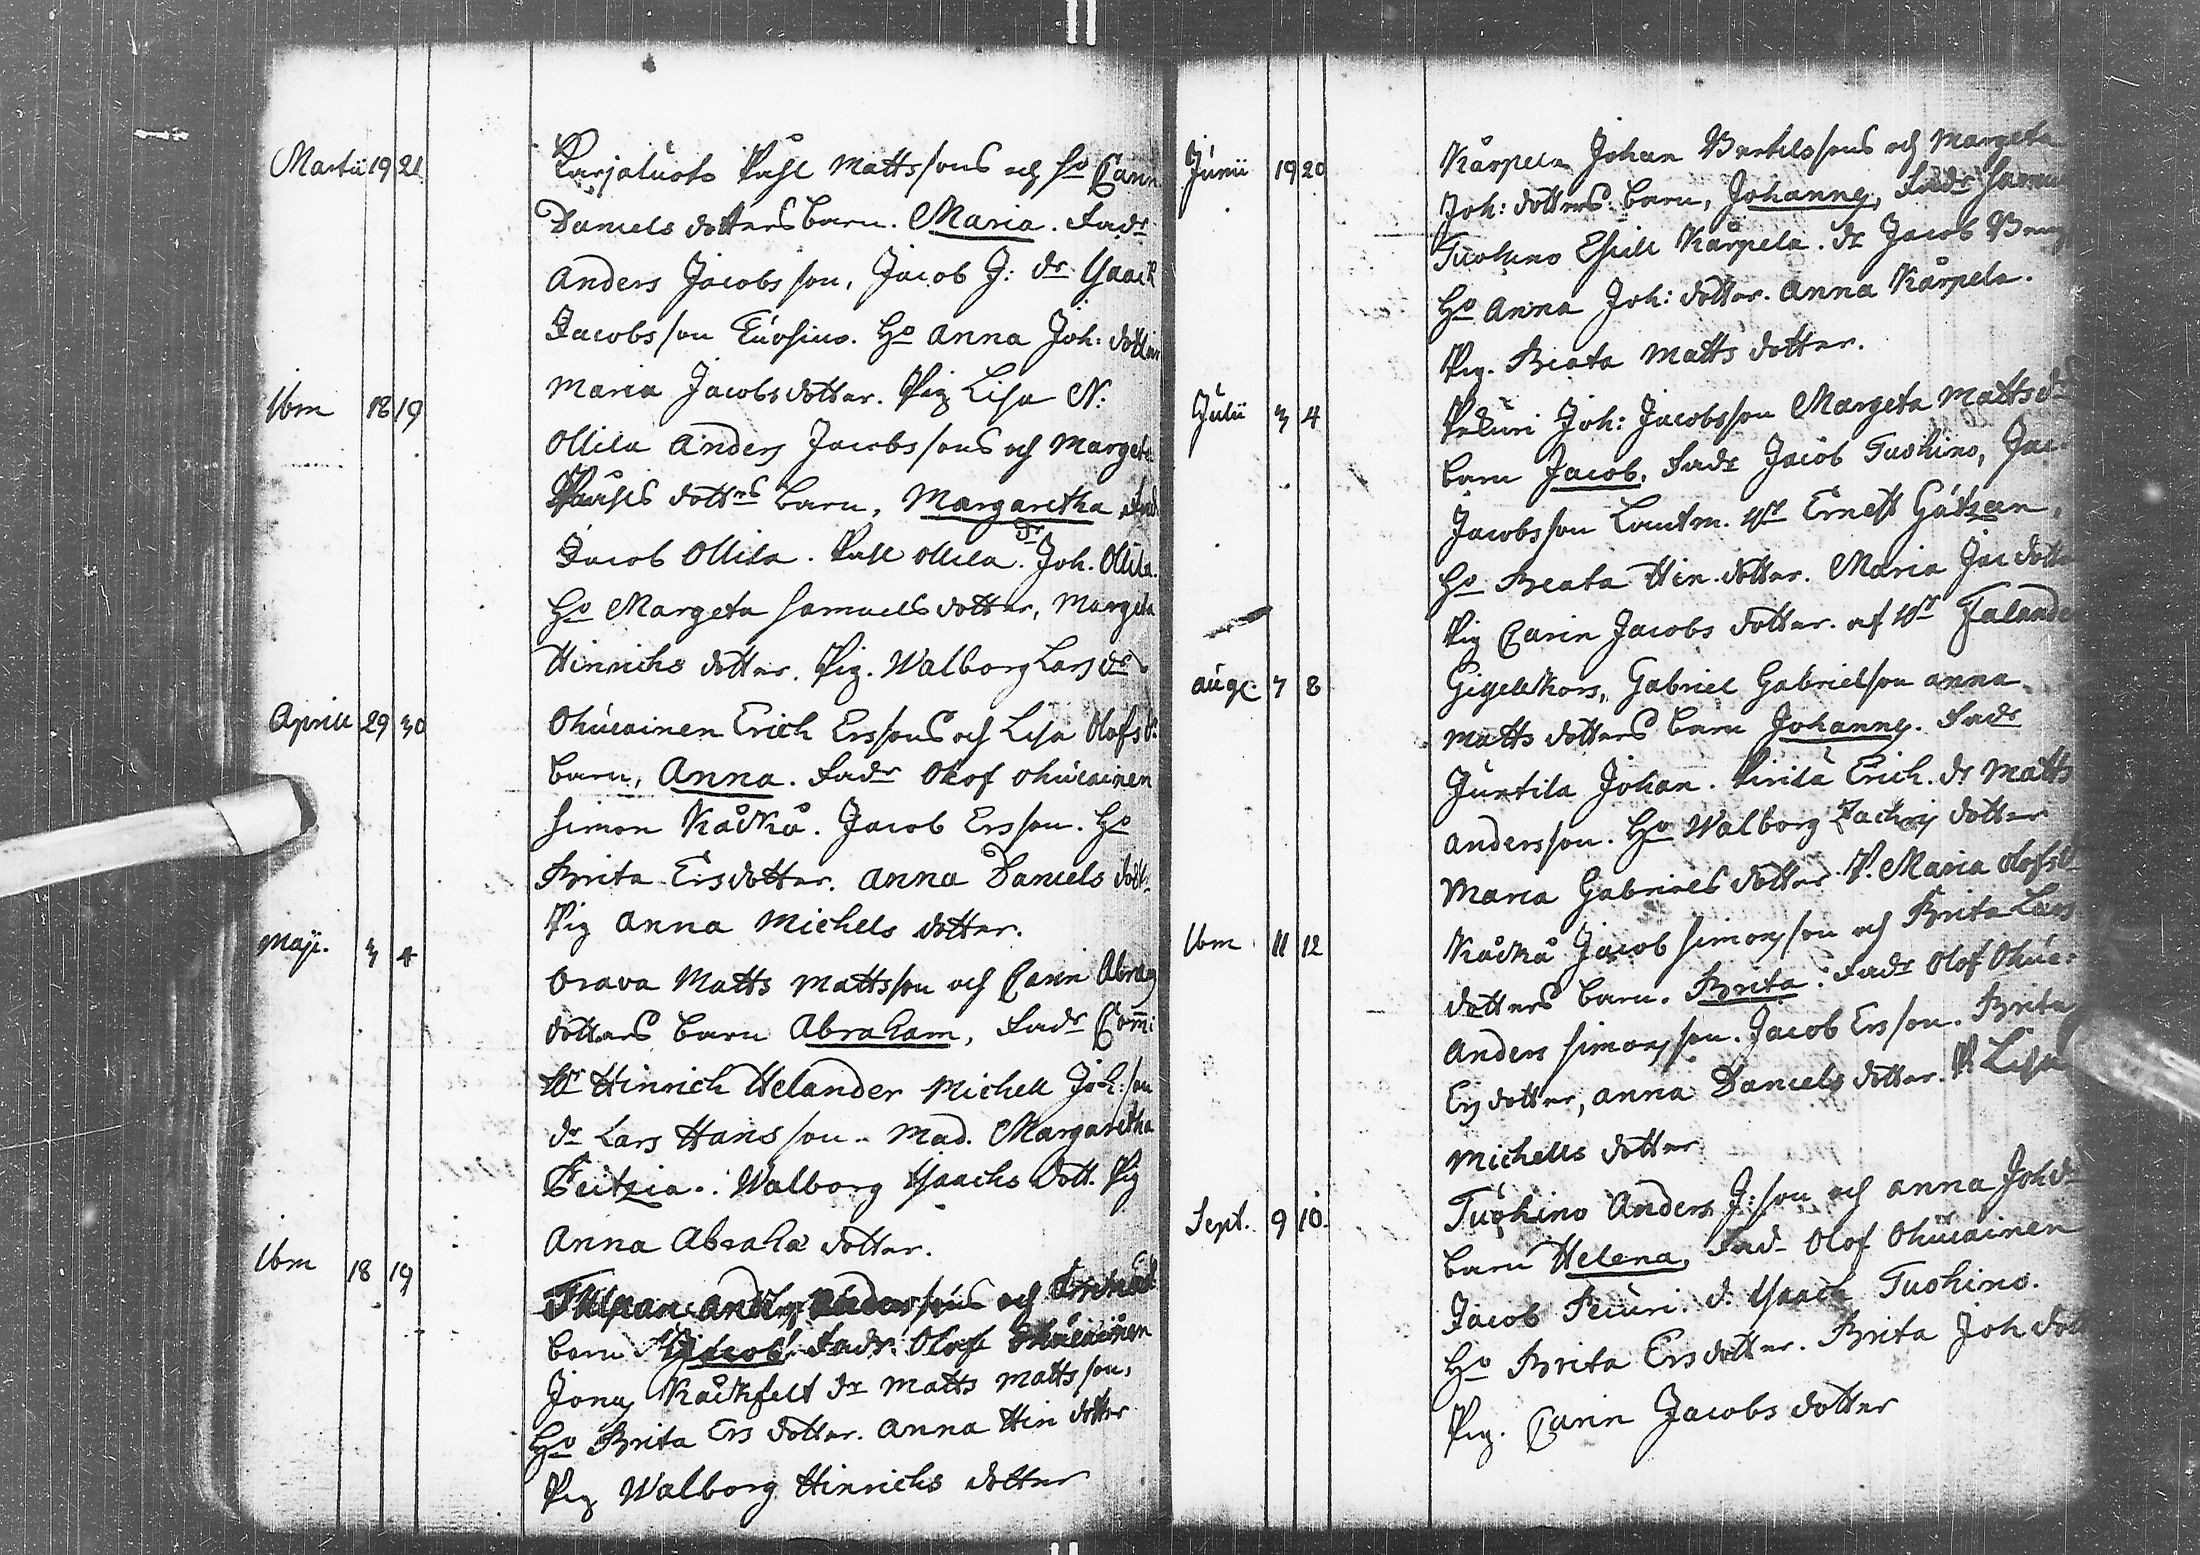 Martii 19 21 Karjaluoto Påhl Mattssons och ho Carin
Daniels dotters barn. Maria. Fadr
Anders Jacobsson, Jacob J: dr Isaack
Jacobsson Tuohino. Ho Anna Joh: dotter
Maria Jacobsdotter. Pig Lisa N:
Ibm 18 19 Ollila Anders Jacobssons och Margeta
Påhls dottrs barn, Margaretha, Fad.
Jacob Ollila. Påhl Ollila. Dr Joh. Ollila.
Ho Margeta Samuelsdotter, Margeta
Hinrichs dotter. Pig. Walborg Lars dr
Aprill 29 30 Ohukainen Erich Erssons och Lisa Olofs dr
barn, Anna. Fadr Olof Ohukainen
Simon Kåckå. Jacob Ersson. Ho
Brita Ersdotter. Anna Daniels dott.
Pig Anna Michels dotter.
Maji. 3 4 Orava Matts Mattsson och Carin Abrah
dotters barn Abraham, Fadr Com̄i
Hr Hinrich Helander Michell Joh:son
dr Lars Hansson. Mad. Margaretha
Walborg Isaachs dott. Pig
Anna Abraha dotter.
Ibm 18 19 Anders Anderssons och
barn Jacob. Fadr Olof Ohukainen
Jonas Kåckfelt dr Matts Mattsson,
Ho Brita Ers dotter. Anna Hin dotter
Pig Walborg Hinrichs dotter
Junii 19 20 Kårpela Johan Bertilssons och Margeta
Joh: dotters barn, Johannes, Fadr Samu
Tuohino Eskill Kårpela. dr Jacob Beng
Ho Anna Joh: dotter. Anna Kårpela.
Pig. Beata Matts dotter.
Julii 3 4 Pekuri Joh: Jacobsson Margeta Mattsdr
barn Jacob, Fadr Jacob Tuohino, Jac
Jacobsson Lantm. Hr Ernest Gåtzen,
Ho Beata Hin. dotter. Maria Jac dotter
Pig Carin Jacobs dotter. af Hr Falander
Aug. 7 8 Gabriel Gabrielson Anna
Matts dotters barn Johannes. Fadr
Juntila Johan. Pirilä Erich. dr Matts
Andersson. Ho Walborg Zachris dotter
Maria Gabriels dotter. P. Maria Olofsdr
Ibm 11 12 Kåckå Jacob Simonsson och Brita Lars
dotters barn. Brita. Fadr Olof Ohuc:
Anders Simonsson. Jacob Ersson. Brita
Ers dotter, Anna Daniels dotter. P. Lisa
Michells dotter
Sept. 9 10 Tuohino Anders J:son och Anna Joh dr
barn Helena, Fadr Olof Ohukainen
Jacob Pecuri. d. Isaach Tuohino.
Ho Brita Ersdotter. Brita Joh dott
Pig. Carin Jacobs dotter